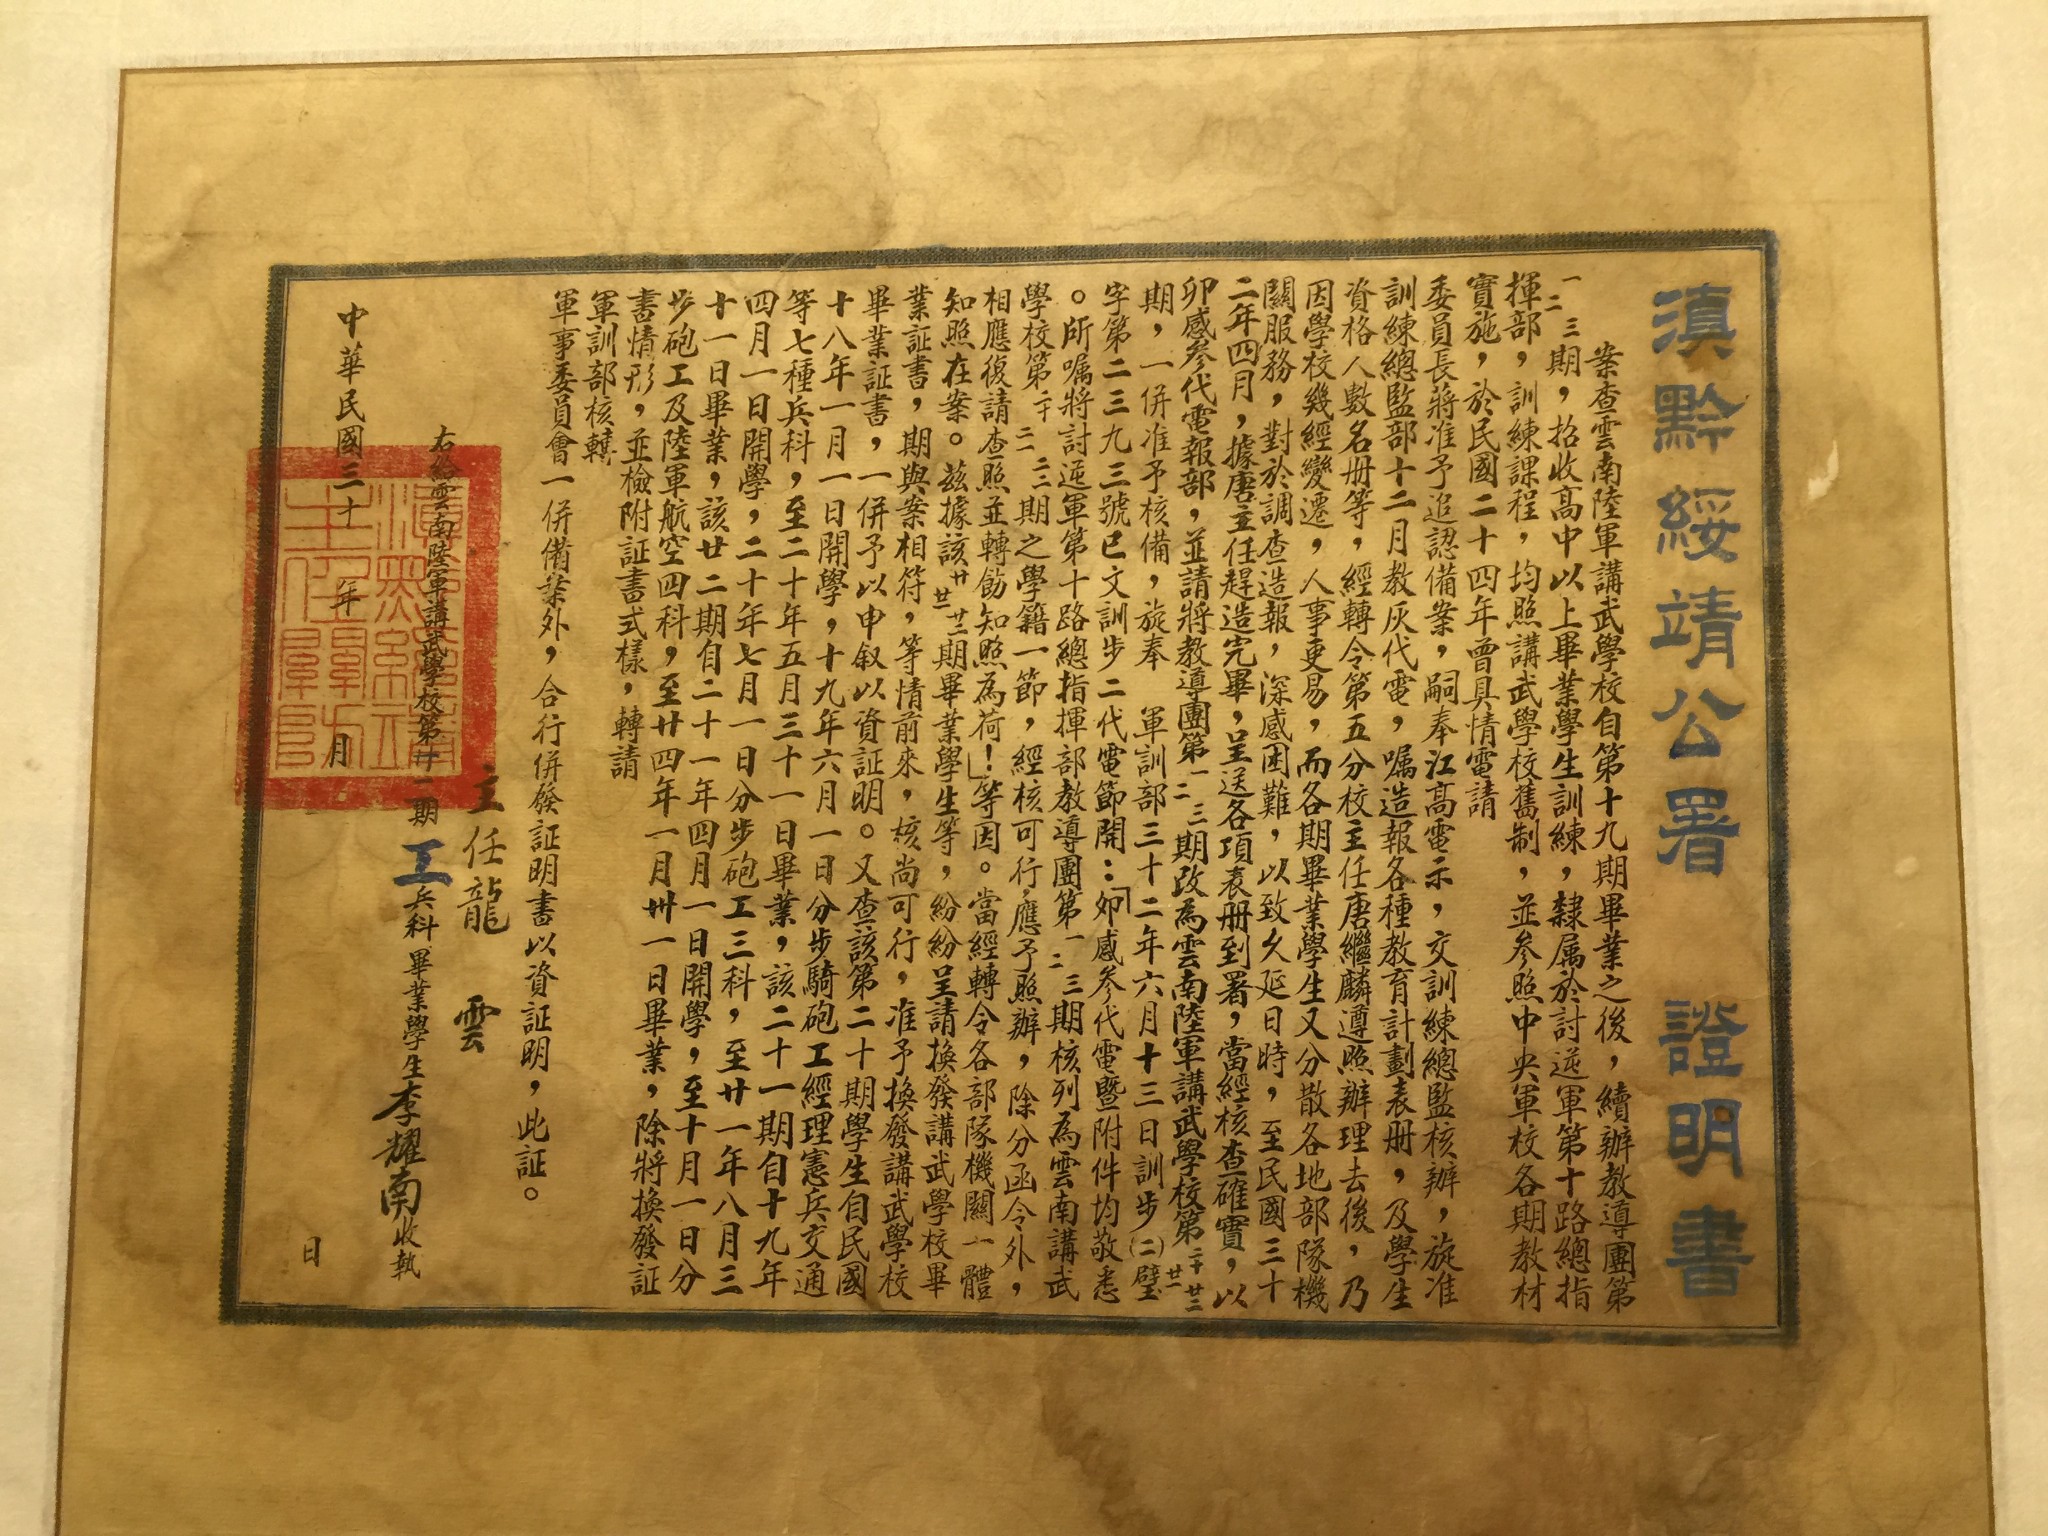 滇黔綏靖公署 證明書
案查雲南陸軍講武學校自第十九期畢業之後，續辦教導團第
一二三期，招收高中以上畢業學生訓練，隸属於討逆軍第十路總指
揮部，訓練課程，均照講武學校舊制，並参照中央軍校各期教材
實施，於民國二十四年曾具情電請
委員長蔣准予追認備案，嗣奉江高電示，交訓練總監核辦，旋准
訓練總監部十二月教灰代電，嘱造報各種教育計劃表册，及學生
資格人數名册等，經轉令第五分校主任唐繼麟遵照辦理去後，乃
因學校幾經變遷，人事更易，而各期畢業學生又分散各地部隊機
關服務，對於調查造報，深感困難，以致久延日時，至民國三十
二年四月，據唐主任趕造完畢，呈送各項表册到署，當經核查確實，以
卯感参代電報部，並請將教導團第一二三期改為雲南陸軍講武學校第二十廿一廿二
期，一併准予核備，旋奉 軍訓部三十二年六月十三日訓步(二)璧
字第二三九三號巳文訓步二代電節開：「卯感参代電暨附件均敬悉
。所嘱將討逆軍第十路總指揮部教導團第一二三期核列為雲南講武
學校第二十一二期之學籍一節，經核可行，應予照辦，除分函令外，
相應復請查照並轉飭知照為荷！」等因。當經轉令各部隊機關一體
知照在案。茲據該廿廿一廿二期畢業學生等，紛紛呈請換發講武學校畢
業証書，期與案相符，等情前來，核尚可行，准予換發講武學校
畢業証書，一併予以申叙以資証明。又查該第二十期學生自民國
十八年一月一日開學，十九年六月一日分步騎砲工經理憲兵交通
等七種兵科，至二十年五月三十一日畢業，該二十一期自十九年
四月一日開學，二十年七月一日分步砲工三科，至廿一年八月三
十一日畢業，該廿二期自二十一年四月一日開學，至十月一日分
步砲工及陸軍航空四科，至廿四年一月卅一日畢業，除將換發証
書情形，並檢附証書式樣，轉請
軍訓部核轉
軍事委員會一併備案外，合行併發証明書以資証明，此証。
主任龍雲
右給雲南陸軍講武學校第廿二期工兵科畢業學生李耀南收執
中華民國三十 年 月 日